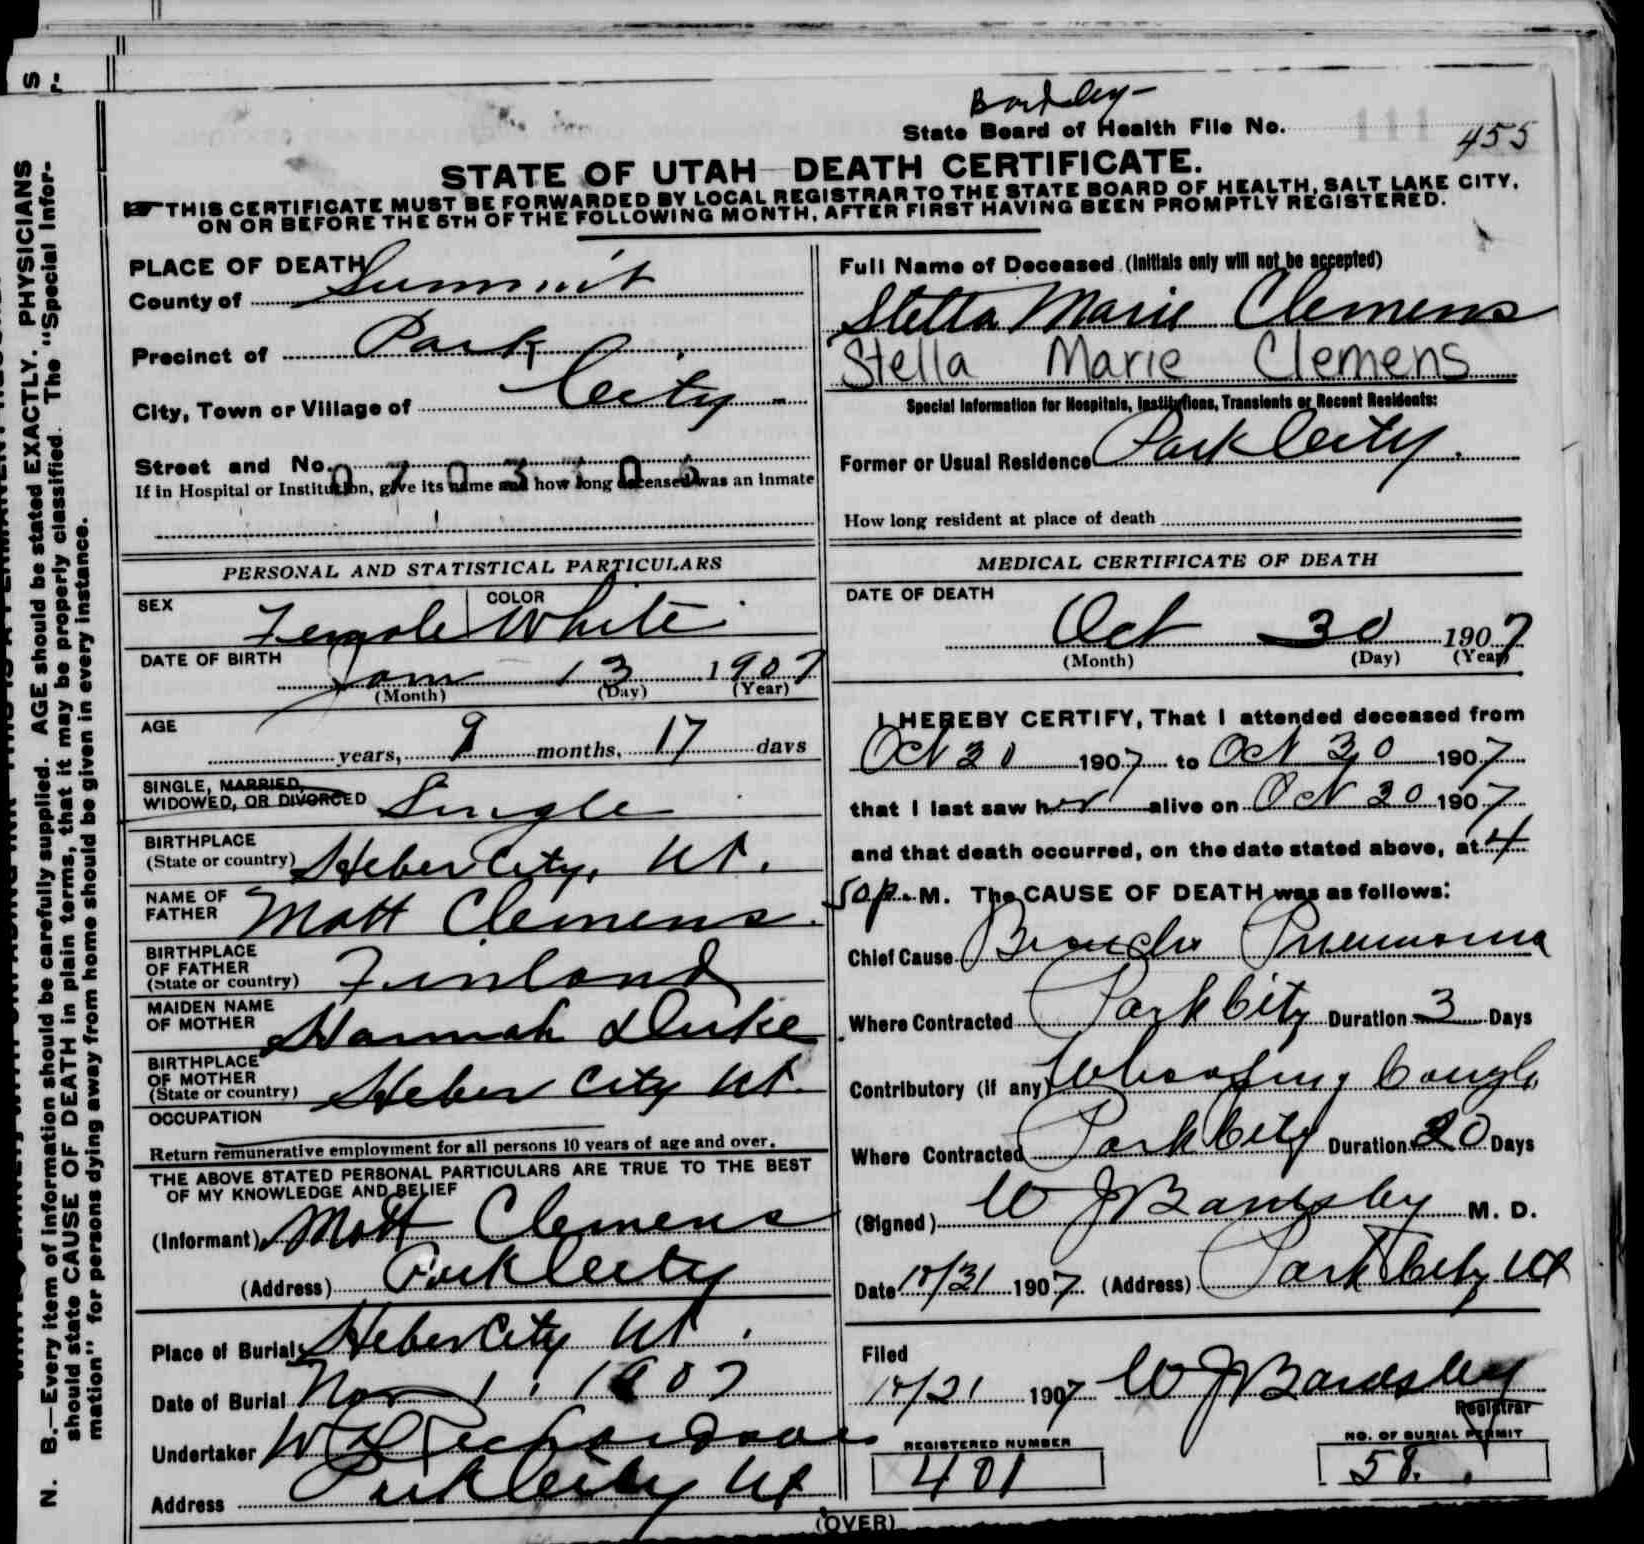 Bardsley
State Board of Health File No. 455
STATE OF UTAH—DEATH CERTIFICATE.
THIS CERTIFICATE MUST BE FORWARDED BY LOCAL REGISTRAR TO THE STATE BOARD OF HEALTH, SALT LAKE CITY,
ON OR BEFORE THE 5TH OF THE FOLLOWING MONTH, AFTER FIRST HAVING BEEN PROMPTLY REGISTERED.
PLACE OF DEATH
County of Summit
Precinct of Park
City, Town or Village of City
Street and No. 0703370
If in Hospital or Institution, give its name and how long deceased was an Inmate
PERSONAL AND STATISTICAL PARTICULARS
SEX Female COLOR White
DATE OF BIRTH Jan 13 1907
(Month) (Day) (Year)
AGE years, 9 months, 17 days
SINGLE, MARRIED,
WIDOWED, OR DIVORCED Single
BIRTHPLACE
(State or country) Heber City, Ut.
NAME OF
FATHER Matt Clemens
BIRTHPLACE
OF FATHER
(State or country) Finland
MAIDEN NAME
OF MOTHER Hannah Duke
BIRTHPLACE
OF MOTHER
(State or country) Heber City Ut.
OCCUPATION
Return remunerative employment for all persons 10 years of age and over.
THE ABOVE STATED PERSONAL PARTICULARS ARE TRUE TO THE BEST
OF MY KNOWLEDGE AND BELIEF
(Informant) Matt Clemens
(Address) Park City
Place of Burial Heber City Ut.
Date of Burial Nov 1, 1907
Undertaker W Richardson
Address Park City Ut
Full Name of Deceased (Initials only will not be accepted)
Stella Marie Clemens
Stella Marie Clemens
Special Information for Hospitals, Institutions, Transients or Recent Residents:
Former or Usual Residence Park City.
How long resident at place of death
MEDICAL CERTIFICATE OF DEATH
DATE OF DEATH
Oct 30 1907
(Month) (Day) (Year)
I HEREBY CERTIFY, That I attended deceased from
Oct 30 1907 to Oct 30 1907
that I last saw her alive on Oct 30 1907
and that death occurred, on the date stated above, at 4
50 p. M. The CAUSE OF DEATH was as follows:
Chief Cause Broncho Pneumonia
Where Contracted Park City Duration 3 Days
Contributory (if any) Whooping Cough
Where Contracted Park City Duration 20 Days
(Signed) W J Bardsley M. D.
Date 10/31 1907 (Address) Park City Ut
Filed
10/31 1907 W J Bardsley
Registrar
REGISTERED NUMBER
401
NO. OF BURIAL PERMIT
58.
(OVER)
N. B.—Every item of information should be carefully supplied. AGE should be stated EXACTLY. PHYSICIANS
should state CAUSE OF DEATH in plain terms, that it may be properly classified. The "Special Infor-
mation" for persons dying away from home should be given in every instance.